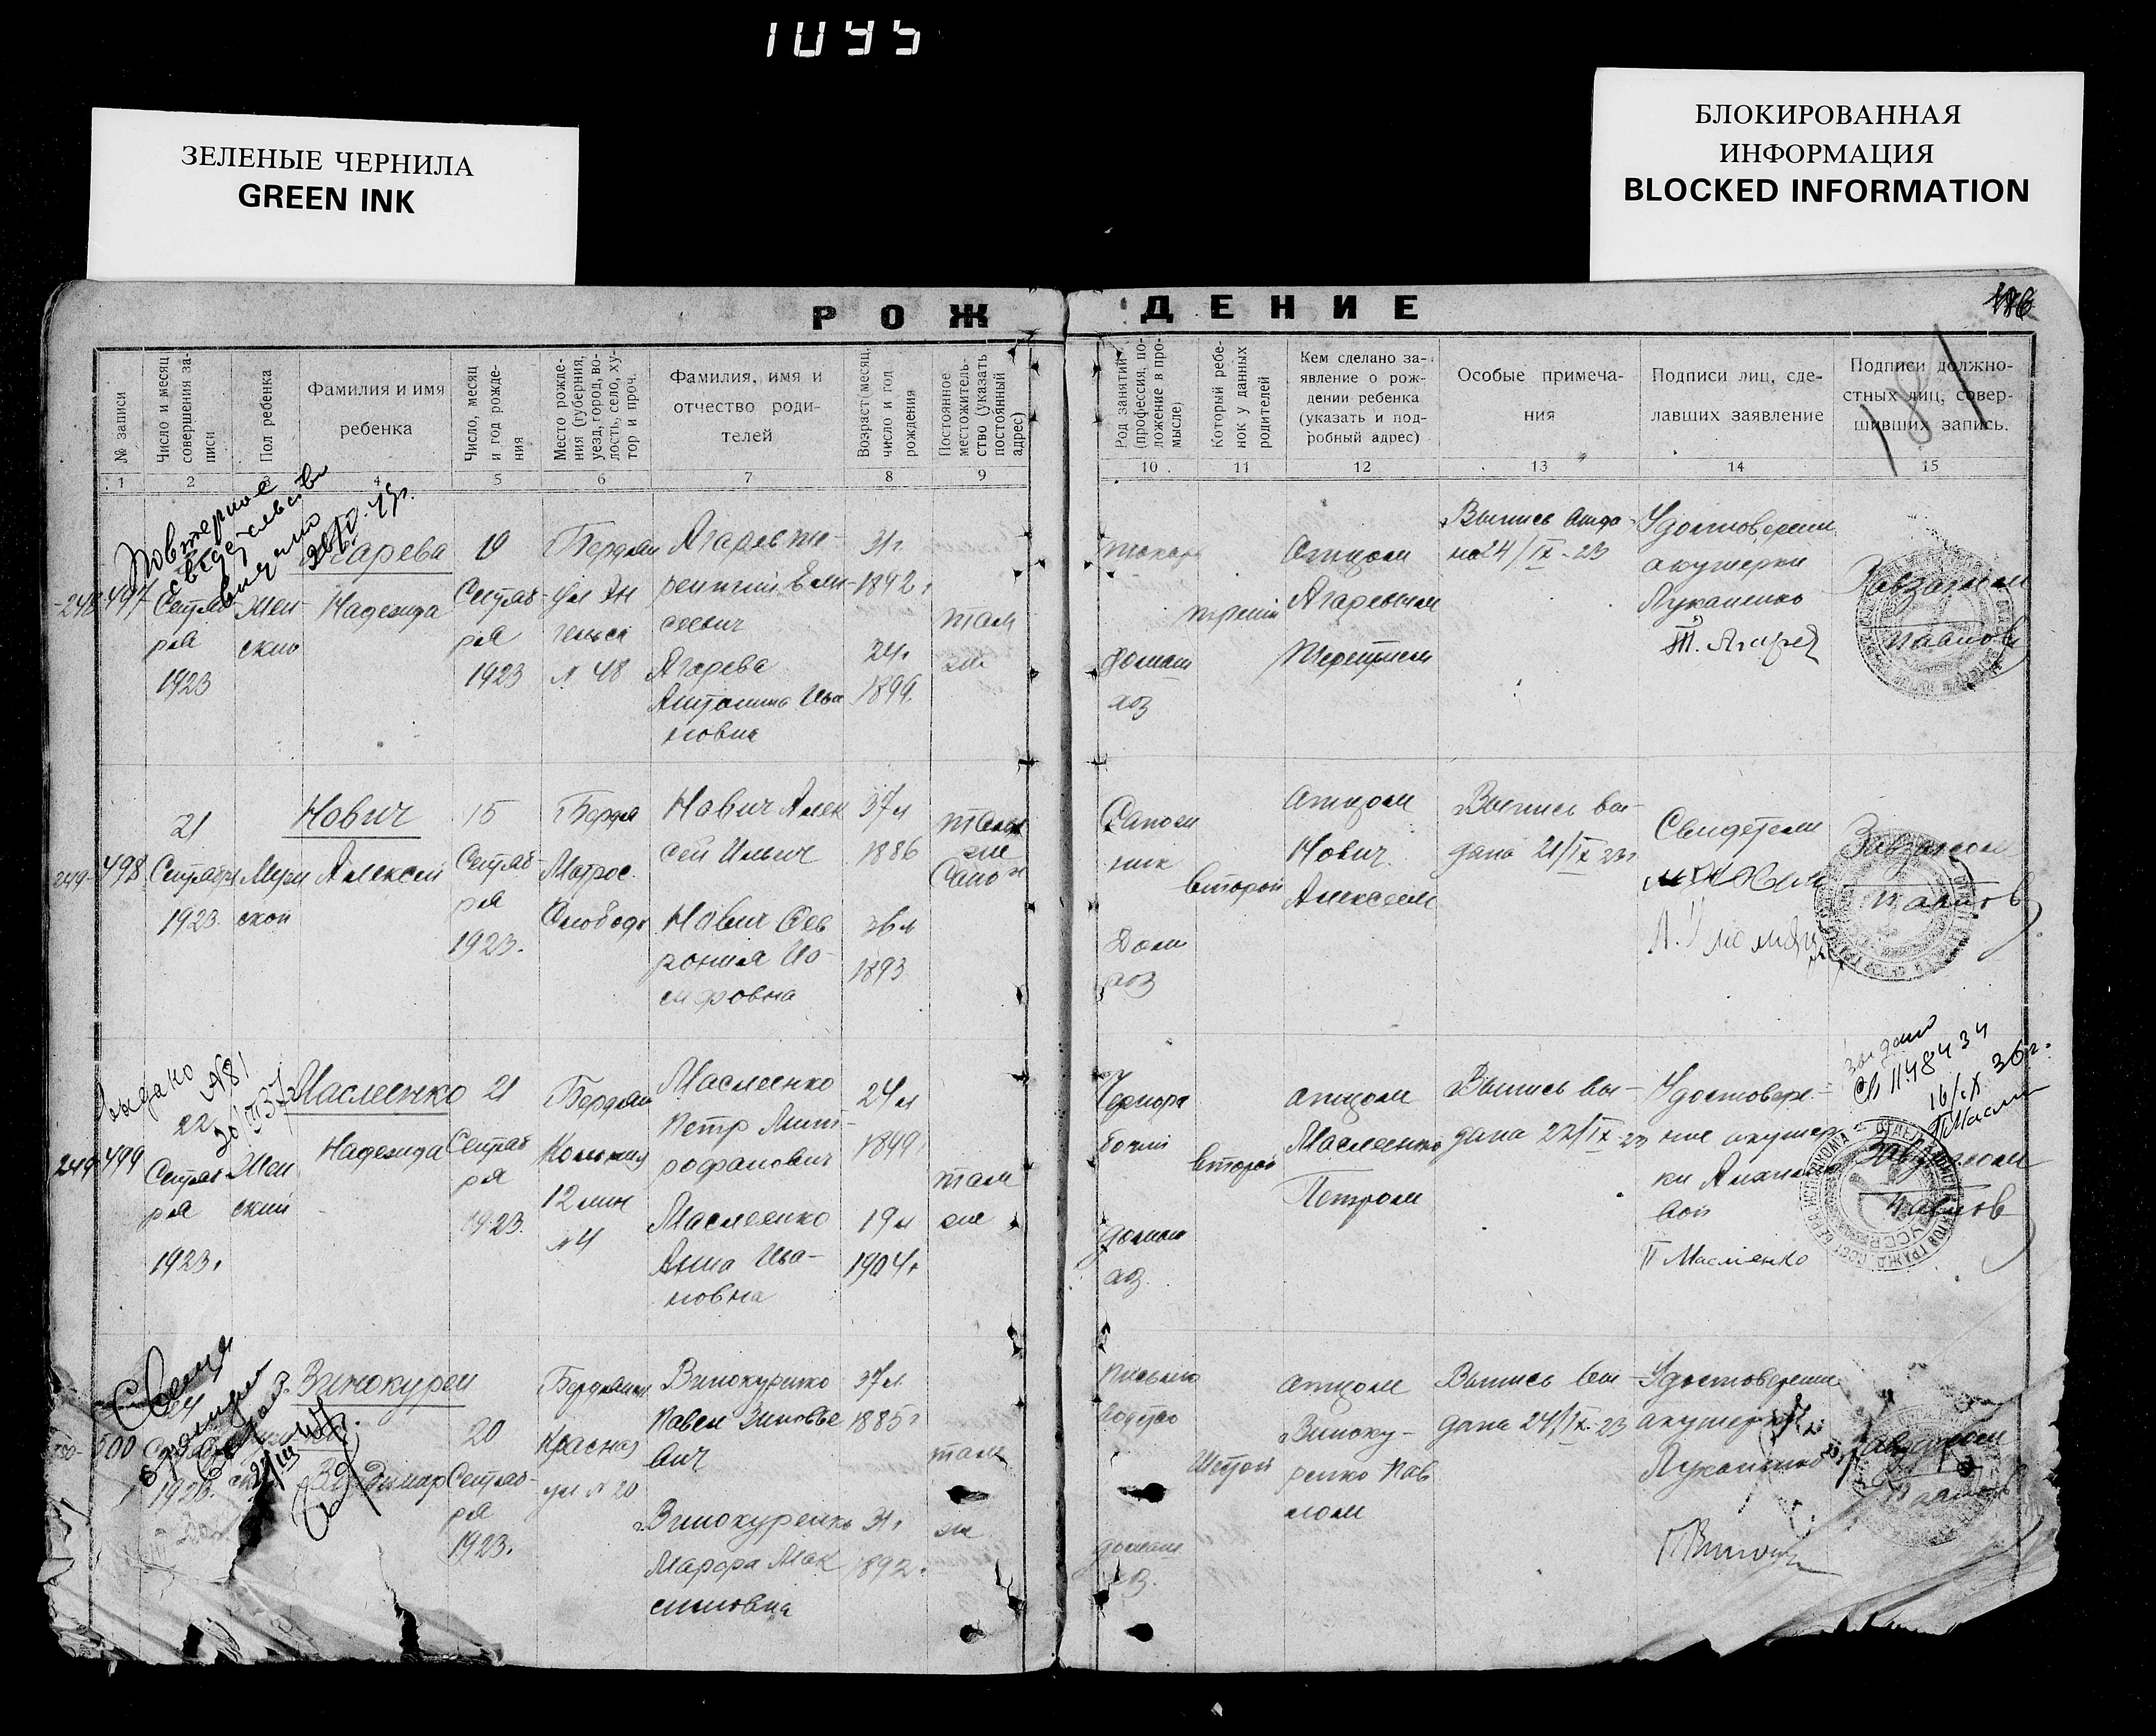 1045
ЗЕЛЕНЫЕ ЧЕРНИЛА
GREEN INK
БЛОКИРОВАННАЯ
ИНФОРМАЦИЯ
BLOCKED INFORMATION
РОЖДЕНИЕ
186
181
№ записи
Число и месяц
совершения за-
писи
Пол ребенка
Фамилия и имя
ребенка
Число, месяц
и год рожде-
ния
Место рожде-
ния (губерния,
уезд, город, во-
лость, село, ху-
тор и проч.
Фамилия, имя и
отчество роди-
телей
Возраст (месяц,
число и год
рождения
Постоянное
местожитель-
ство (указать
постоянный
адрес)
Род занятий
(профессия, по-
ложение в про-
мысле)
Который ребе-
нок у данных
родителей
Кем сделано за-
явление о рож-
дении ребенка
(указать и под-
робный адрес)
Особые примеча-
ния
Подписи лиц, сде-
лавших заявление
Подписи должно-
стных лиц, совер-
шивших запись.
1 2 3 4 5 6 7 8 9 10 11 12 13 14 15
Повторное
свидетельство
выдано
497
Сентяб
ря
1923
Жен
ский
Агарева
Надежда
19
Сентяб-
ря
1923
Бердян
ул Эн
гельса
№ 48
Агарев Те-
рентий Ели-
сеевич
Агарева
Антонина Ива
новна
31г
1892г
24г
1899.
там
же
токарь
домаш
хоз
третий
Отцом
Агаревым
Терентием
Выпись выда-
на 24/IX-23
Удостоверение
акушерки
Луканенко
Т. Агарев
Завзагсом
Павлов
249-
498
21
Сентября
1923.
Муж
ской
Нович
Алексей
15
Сентяб-
ря
1923.
Бердя
Матрос.
Слобода
Нович Алек
сей Ильич
Нович Фев
рония Ио-
сифовна
37л
1886
1893
там
же
Сапож
ник
Дом
хоз
второй
Отцом
Нович
Алексеем
Выпись вы-
дана 21/IX 23г
Свидетели
Завзагсом
Павлов
Выдано
№81
249
499
22
Сентяб
ря
1923г
Жен
ский
Маслеенко
Надежда
21
Сентяб
ря
1923.
Бердян
Колония
12 лин
№ 4
Маслеенко
Петр Мит-
рофанович
Маслеенко
Анна Ива-
новна
24л
1899г
19л
1904г
там
же
Чернора
бочий
домаш
хоз.
второй
отцом
Маслеенко
Петром
Выпись вы-
дана 22/IX-23
Удостовере-
ние акушер
ки
П Маслiенко
выдано
16/IX 36г.
Завзагсом
Павлов
500
24
1923.
Винокурен
Владимир
20
Сентяб-
ря
1923.
Бердянск
Красная
ул № 20
Винокуренко
Павел Зиновье
вич
Винокуренко
Марфа Мак
симовна
37л
1885г
31г
1892г.
там
же
Письмо
водит
домаш
хоз.
Шестой
отцом
Виноку-
ренко Пав
лом
Выпись вы-
дана 24/IX-23
Удостоверение
акушерки
Луканенко
Завзагсом
Павлов